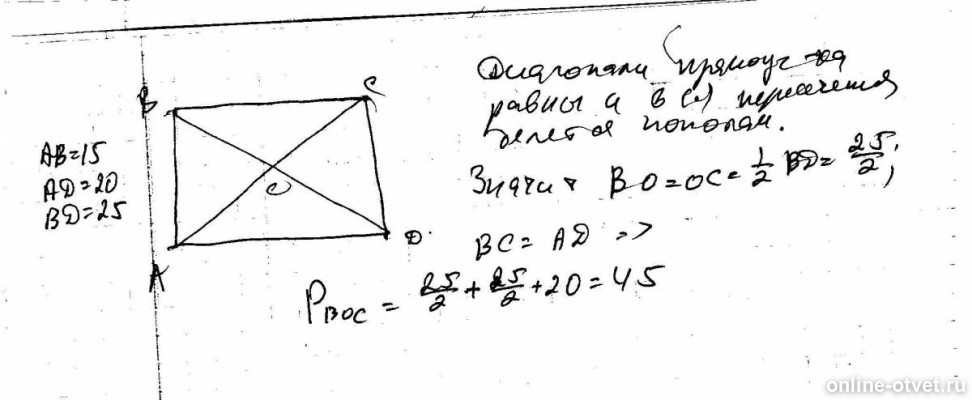 B
C
AB=15
AD=20
BD=25
A
D
Диагонали прямоуг-ка
равны и в (·) пересечения
делятся пополам.
Значит BO=OC=1/2 BD=25/2;
BC=AD =>
P BOC = 25/2+25/2+20=45
online-otvet.ru